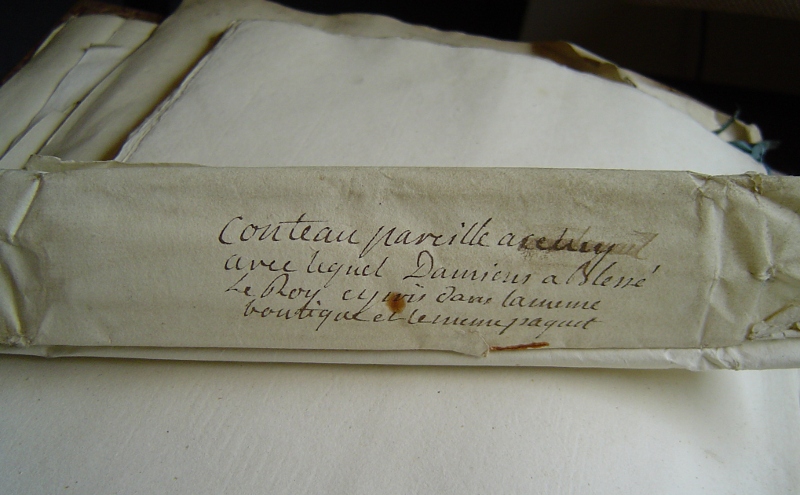 Couteau pareille a celuy
avec lequel Damiens a Blessé
Le Roy et pris dans la meme
boutique et le meme paquet